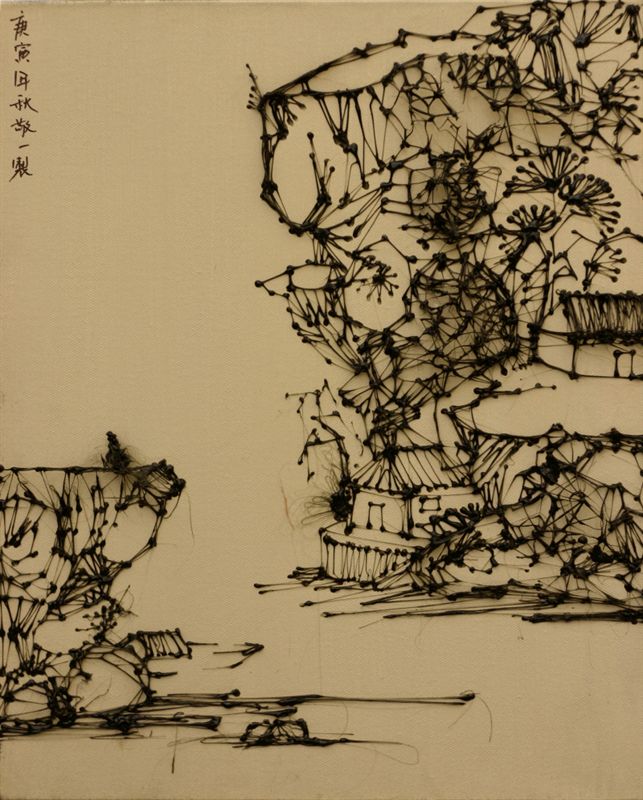 庚寅年秋敬一製